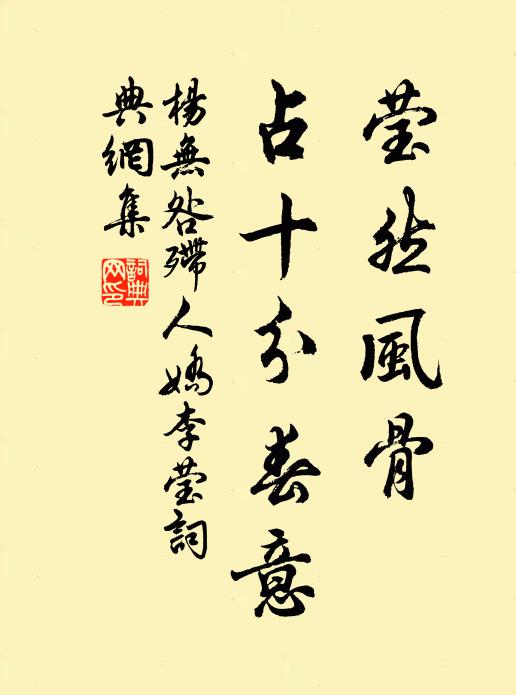 莹然風骨
占十分春意
楊無咎殢人嬌李莹詞
典網集
詞典网印